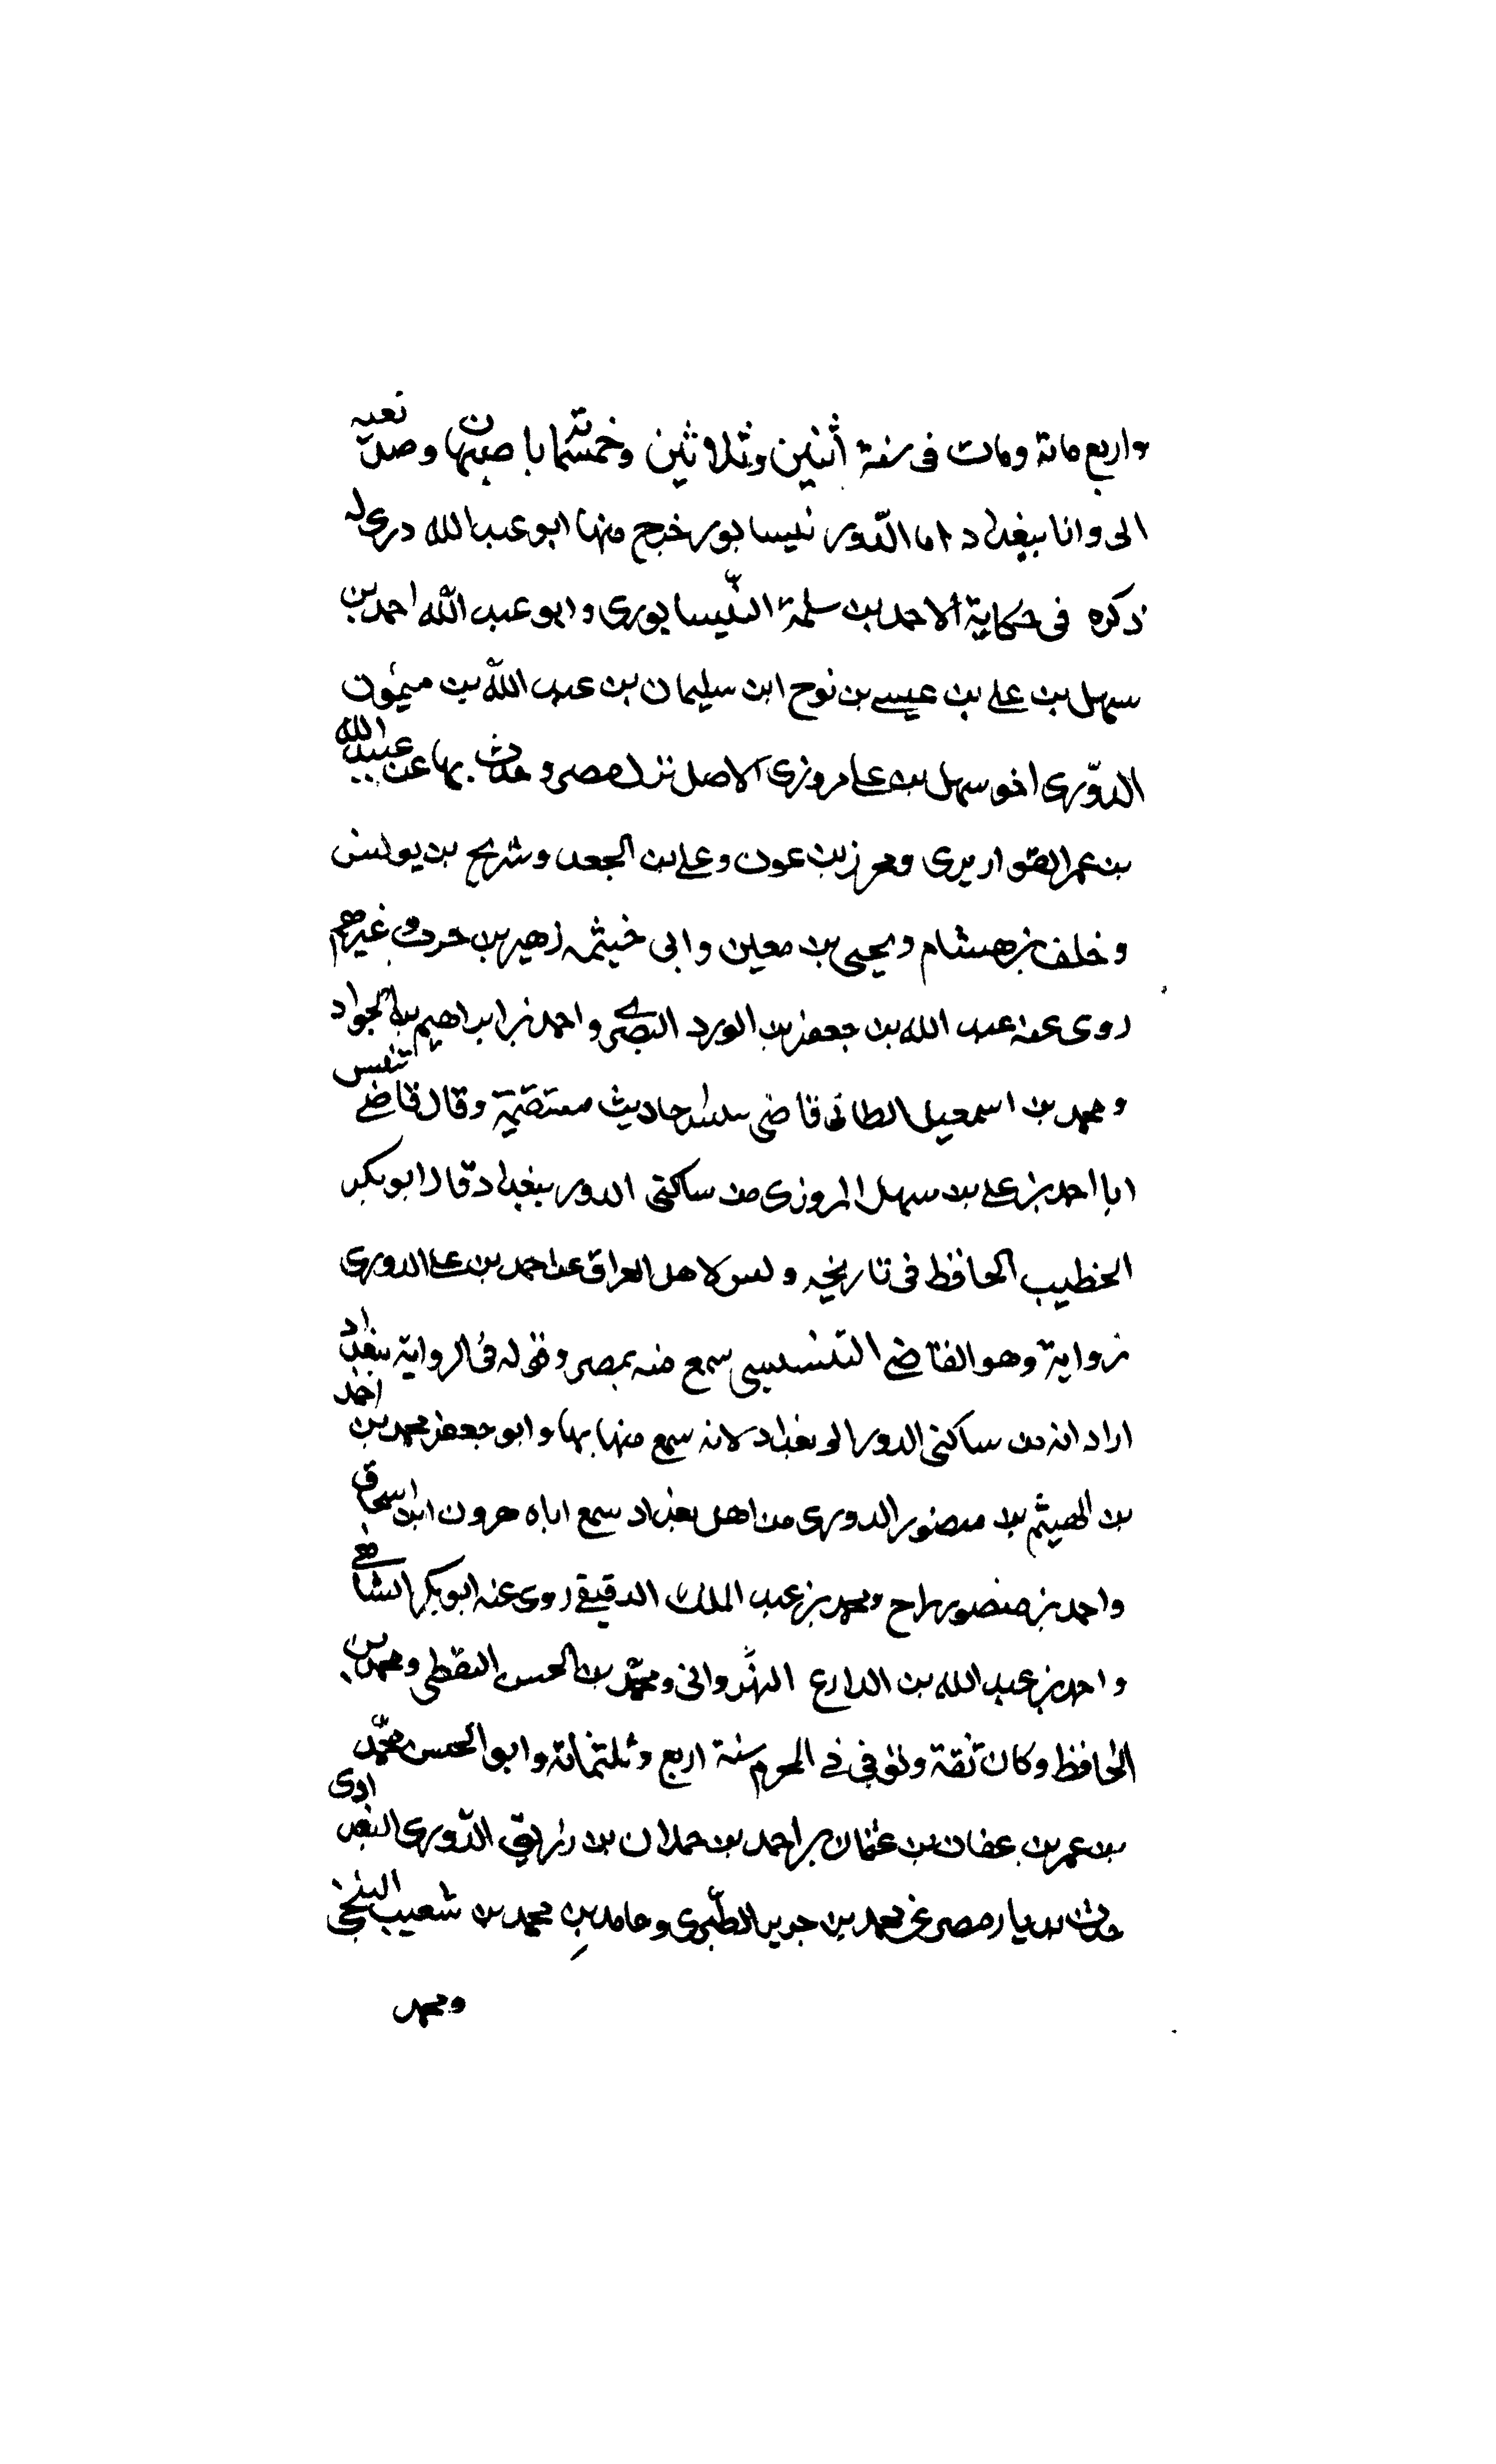 واربع مائة ومات فى سنة اثنين وثلاثين وخمسمائة باصبهان وصل نعيه
الى وانا ببغداد اما الدور نيسابور خرج منها ابو عبد الله درى له
ذكره فى حكاية الاحمد بن سلمة النّيسابورى وابو عبد الله احمد بن
سهل بن على بن عيسے بن نوح ابن سليمان بن عبد الله بن ميمون
الدوّرى اخو سهل بن على مروزى الاصل نزل مصر وحدث بها عن عبيد الله
بن عمر القواريرى ومحرز بن عون وعلى بن الجعد وشريح بن يونس
وخلف بن هشام ويحيى بن معين وابى خيثمه زهير بن حرب وغيرهم
روى عنه عبد الله بن جعفر بن الورد البصرى واحمد بن ابراهيم بن الجواد
ومحمد بن اسمعيل الطائى قاضى احاديث مستقيمة وقال قاضے تنيس
ابا احمد بن على بن سهل المروزى من ساكنى الدور ببغداد قال ابو بكر
الخطيب الحافظ فى تاريخه وليس لاهل العراق عن احمد بن على الدورى
رواية وهو القاضے التنيسى سمع منه بمصر وقوله فى الرواية ببغداد
اراد انه من ساكنى الدور لانه سمع منها بها وابو جعفر محمد بن احمد
بن الهيثم بن منصور الدورى من اهل بغداد سمع اباه هرون ابن اسحاق
واحمد بن منصور راح ومحمد بن عبد الملك الدقيقے روى عنه ابو بكر الشافعے
واحمد بن عبد الله بن الدارع النهروانى ومحمد بن الحسن اليقطى ومحمد بن
الحافظ وكان ثقة وتوفى فے المحرم سنة اربع وثلثمائة وابو الحسن محمّد
بن عمر بن عفان بن عثمان بن احمد بن حمدان بن زريق الدّورى البغدادى
حدث بديار مصر عن محمد بن جرير الطّبرى وحامد بن محمد بن شعيب البلخى
ومحمد